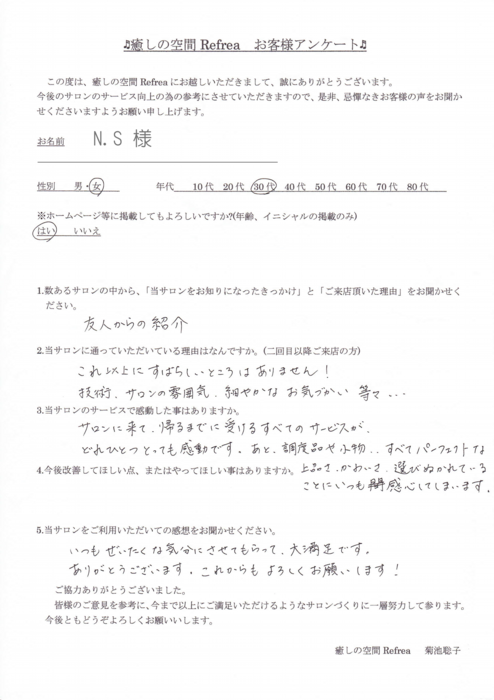 ♫癒しの空間 Refrea お客様アンケート♫
この度は、癒しの空間 Refrea にお越しいただきまして、誠にありがとうございます。
今後のサロンのサービス向上の為の参考にさせていただきますので、是非、忌憚なきお客様の声をお聞か
せくださいますようお願い申し上げます。
お名前 N.S 様
性別 男・女 年代 10代 20代 30代 40代 50代 60代 70代 80代
※ホームページ等に掲載してもよろしいですか?(年齢、イニシャルの掲載のみ)
はい いいえ
1.数あるサロンの中から、「当サロンをお知りになったきっかけ」と「ご来店頂いた理由」をお聞かせく
ださい。
友人からの紹介
2.当サロンに通っていただいている理由はなんですか。(二回目以降ご来店の方)
これ以上にすばらしいところはありません!
技術、サロンの雰囲気、細やかなお気づかい 等々...
3.当サロンのサービスで感動した事はありますか。
サロンに来て、帰るまでに受けるすべてのサービスが、
どれひとつとっても感動です。あと、調度品や小物、、すべてパーフェクトな
4.今後改善してほしい点、またはやってほしい事はありますか。
上品さ、かわいさ、選びぬかれている
ことにいつも感心してしまいます。
5.当サロンをご利用いただいての感想をお聞かせください。
いつもぜいたくな気分にさせてもらって、大満足です。
ありがとうございます。これからもよろしくお願いします!
ご協力ありがとうございました。
皆様のご意見を参考に、今まで以上にご満足いただけるようなサロンづくりに一層努力して参ります。
今後ともどうぞよろしくお願いいします。
癒しの空間 Refrea 菊池聡子